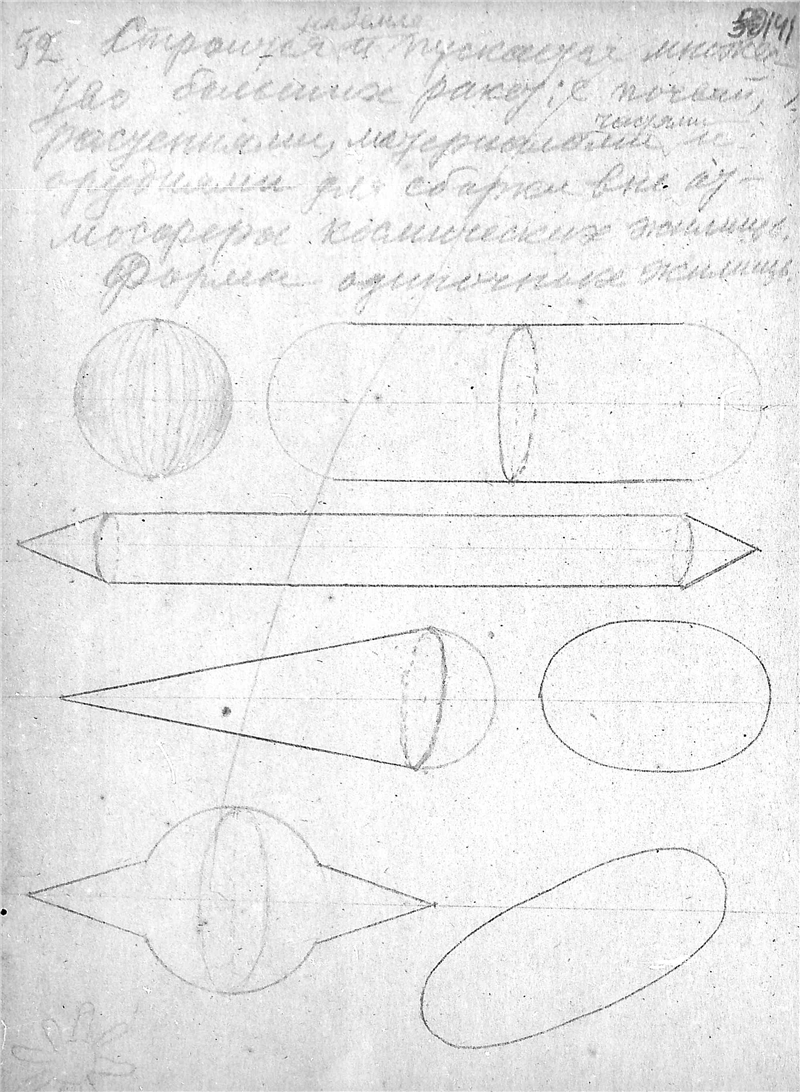 на Земле
52 Строится и пускается множес
тво больших ракет с почвой,
растениями, материалами частями и
орудиями для сборки вне ат-
мосферы космических жилищ.
Форма одиночных жилищ.